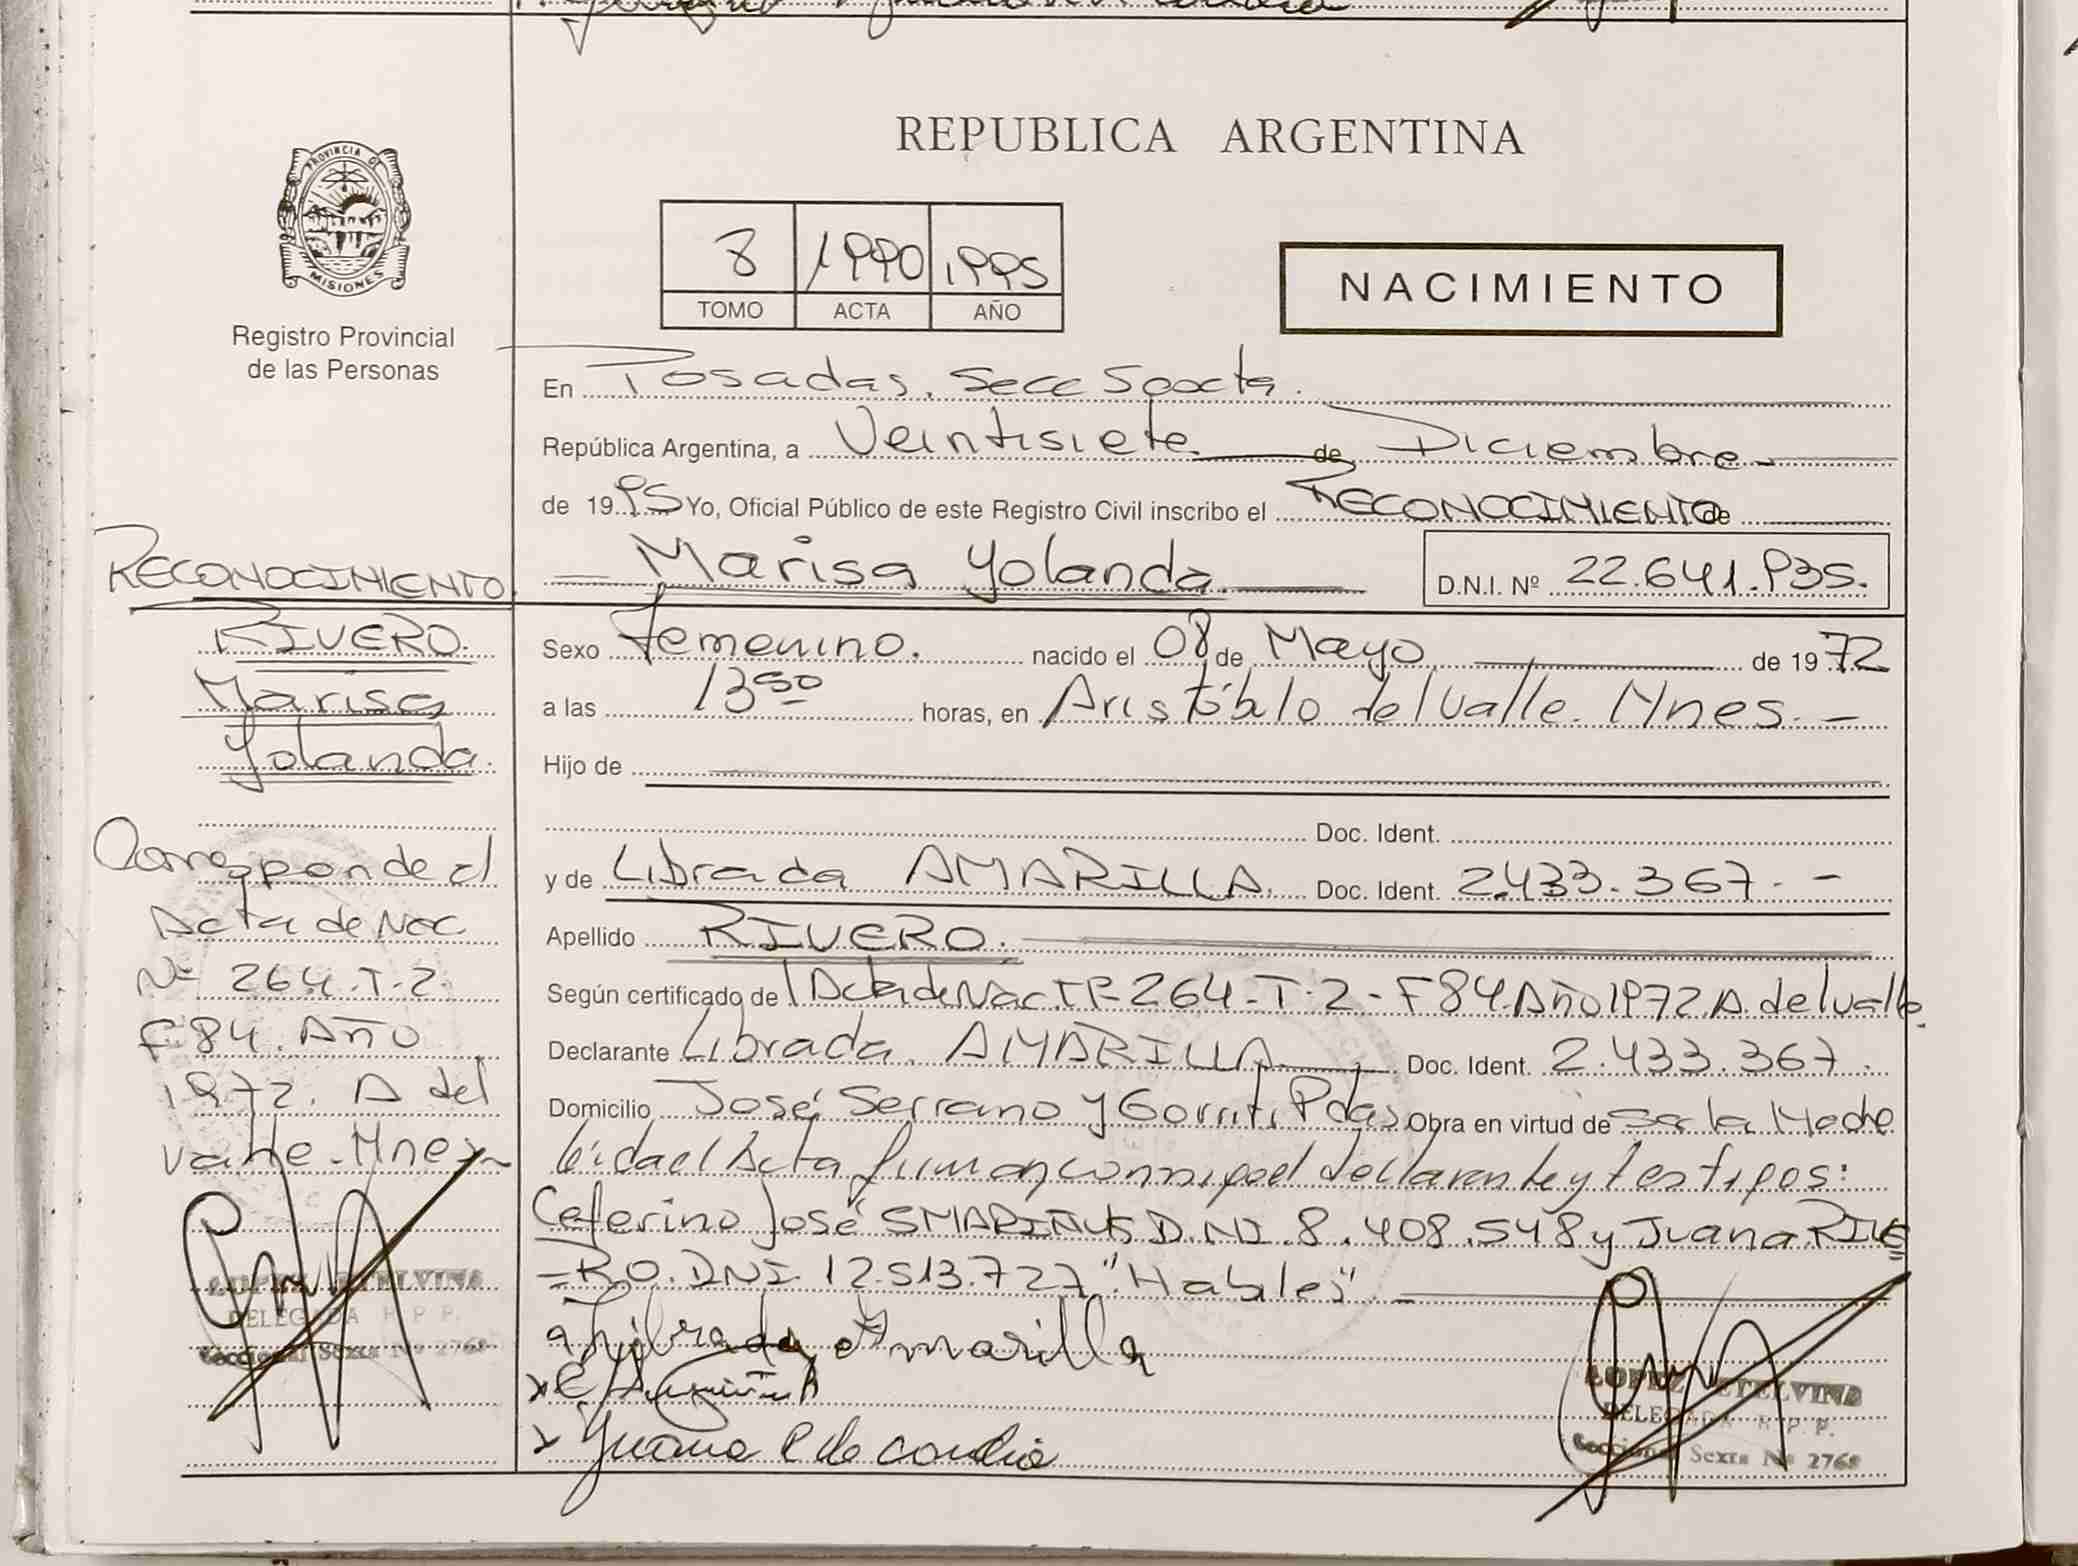 REPUBLICA ARGENTINA
PROVINCIA DE
MISIONES
Registro Provincial
de las Personas
8 1990 1995
TOMO ACTA AÑO
NACIMIENTO
En Posadas. Secc Sexta.
República Argentina, a Veintisiete de Diciembre
de 1995 Yo, Oficial Público de este Registro Civil inscribo el RECONOCIMIENTO de
Marisa Yolanda D.N.I. Nº 22.641.935.
RECONOCIMIENTO
RIVERO.
Marisa
Yolanda.
Corresponde al
Acta de Nac
Nº 264.T.2.
F 84. Año
1972. A del
Valle-Mnes
LOPEZ ETELVINA
DELEGADA R.P.P.
Seccional Sexta Nº 2768
Sexo Femenino. nacido el 08 de Mayo de 1972
a las 13 50 horas, en Aristóbulo del Valle. Mnes.-
Hijo de
Doc. Ident.
y de Librada AMARILLA. Doc. Ident. 2.433.367.-
Apellido RIVERO.
Según certificado de Acta de Nac 264-T.2-F84.Año 1972.A.del Valle.
Declarante Librada. AMARILLA Doc. Ident. 2.433.367.
Domicilio José Serrano y Gorriti. Pdas Obra en virtud de ser la Madre
leída el Acta firman conmigo el declarante y testigos:
Ceferino José D.NI.8.408.548 y Juana RIVE
=RO.DNI.12.513.727 "Habiles"
Librada Amarilla
Juana R de
LOPEZ ETELVINA
DELEGADA R.P.P.
Seccional Sexta Nº 2768